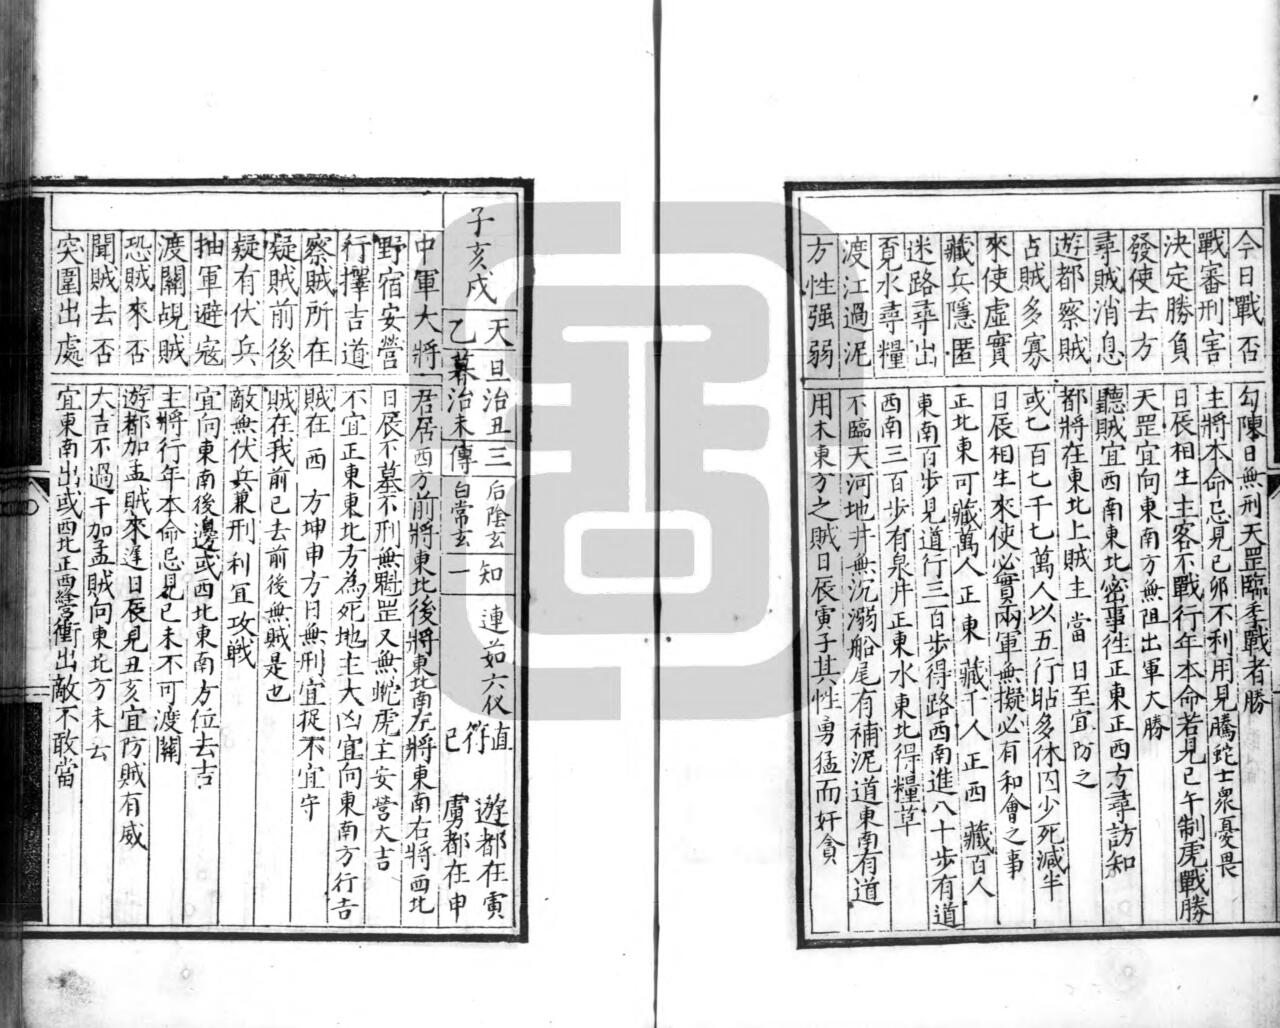 今日戰否 勾陳日無刑天罡臨季戰者勝
戰審刑害 主將本命忌見己卯不利用見騰蛇士衆憂畏
決定勝負 日辰相生主客不戰行年本命若見己午制虎戰勝
發使去方 天罡宜向東南方無阻出軍大勝
尋賊消息 聽賊宜西南東北密事徃正東正西方尋訪知
遊都察賊 都將在東北上賊主當日至宜防之
占賊多寡 或七百七千七萬人以五行帖多休囚少死減半
來使虛實 日辰相生來使必實兩軍無擬必有和會之事
藏兵隱匿 正北東可藏萬人正東藏千人正西藏百人
迷路尋出 東南百步見道行三百步得路西南進八十步有道
覓水尋糧 西南三百步有泉井正東水東北得糧草
渡江過泥 不臨天河地井無沉溺船尾有補泥道東南有道
方性强弱 用木東方之賊日辰寅子其性勇猛而奸貪
子亥戌
天乙
旦治丑
暮治未
三傳
后陰玄
白常玄
知一
連茹六仪
直符巳
遊都在寅
虜都在申
中軍大將 君居西方前將東北後將東北南左將東南右將西北
野宿安營 日辰不墓不刑無魁罡又無蛇虎主安營大吉
行擇吉道 不宜正東東北方為死地主大凶宜向東南方行吉
察賊所在 賊在西方坤申方日無刑宜捉不宜守
疑賊前後 賊在我前已去前後無賊是也
疑有伏兵 敵無伏兵兼刑利宜攻戰
抽軍避寇 宜向東南後邊或西北東南方位去吉
渡關覘賊 主將行年本命忌見己未不可渡關
恐賊來否 遊都加孟賊來遲日辰見丑亥宜防賊有威
聞賊去否 大吉不過干加孟賊向東北方未去
突圍出處 宜東南出或西北正酉營衝出敵不敢當